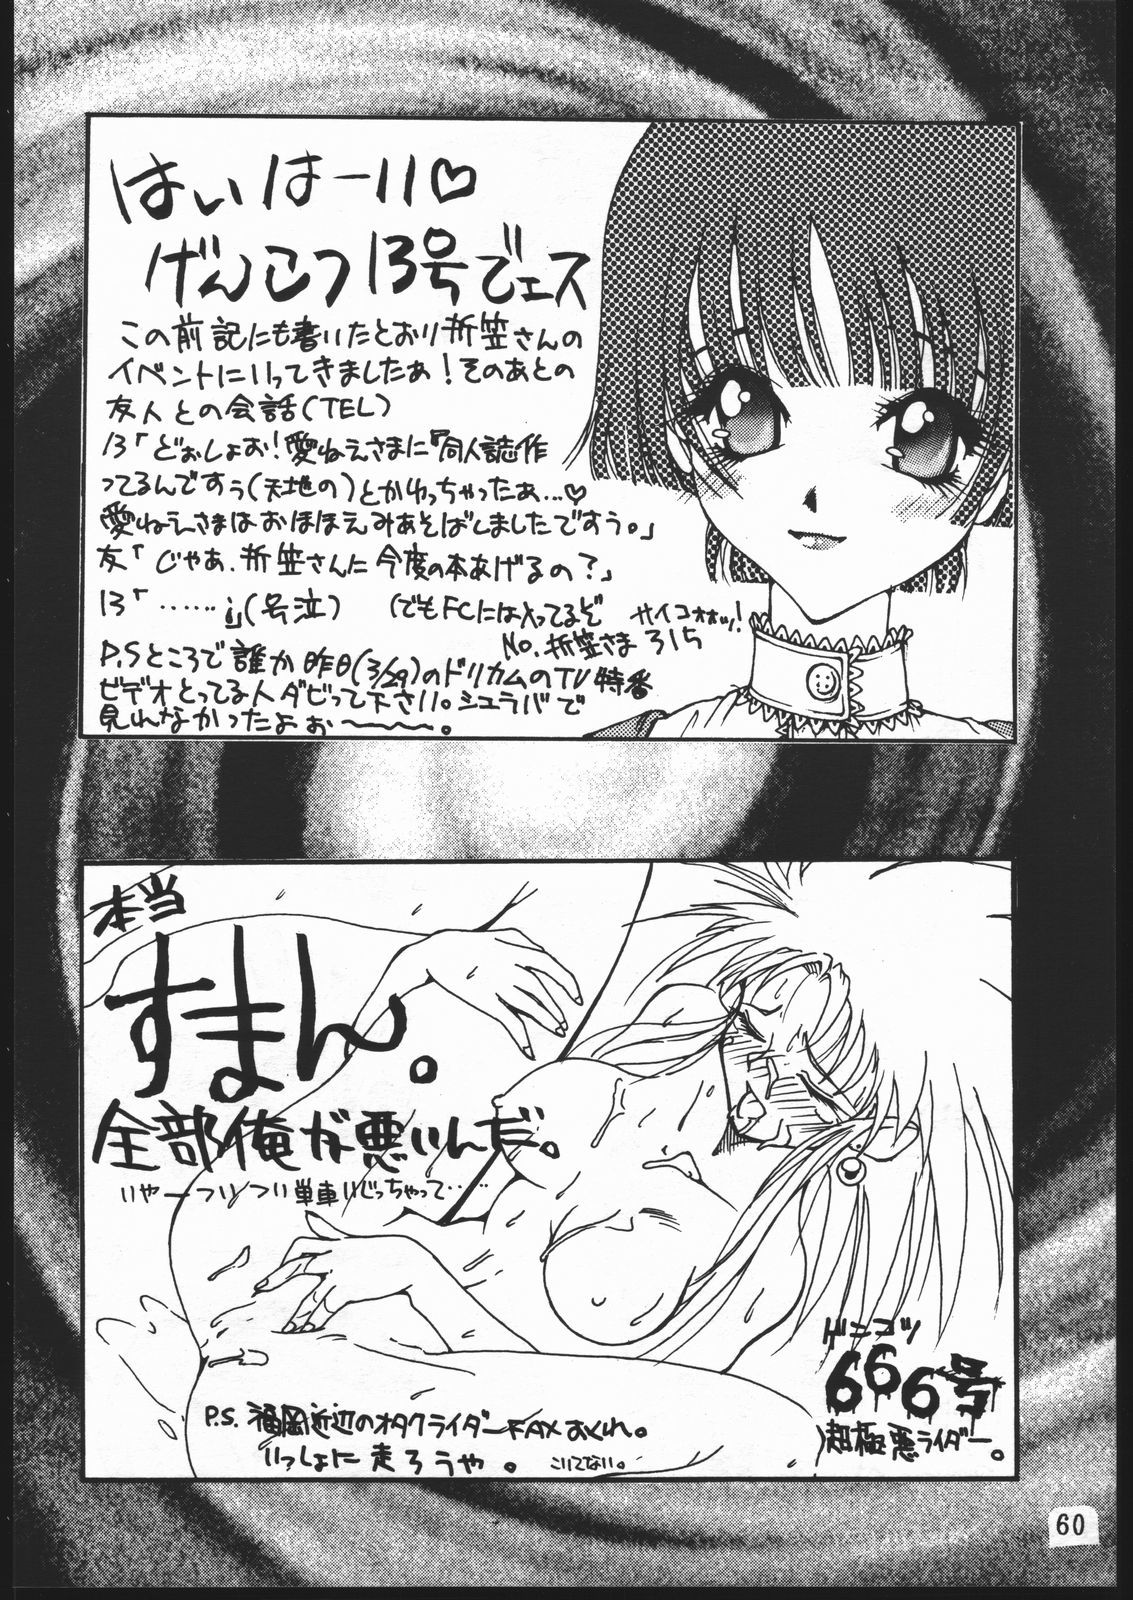 はぃ はーい♡
げんこつ13号でェス
この前記にも書いたとおり折笠さんの
イベントにいってきましたぁ！そのあとの
友人との会話(TEL)
13「どぉしょぉ！愛ねえさまに『同人誌作
ってるんですぅ(天地の)とかゆっちゃったぁ…♡
愛ねえさまはおほほえみあそばしましたですぅ。」
友「じゃあ、折笠さんに今度の本あげるの？」
13「……i」(号泣)
(でもFCにはいってるぞ サイコオォッ!
No.折笠さま315
P.Sところで誰か昨日(3/29)のドリカムのTV特番
ビデオとってる人ダビって下さい。シュラバで
見れなかったよぉ〜〜〜。
本当
すまん。
全部俺が悪いんだ。
いやーついつい単車いじっちゃって……
ゲンコツ
666号
超極悪ライダー。
P.S. 福岡近辺のオタクライダーFAXおくれ。
いっしょに走ろうや。 こいてない。
60